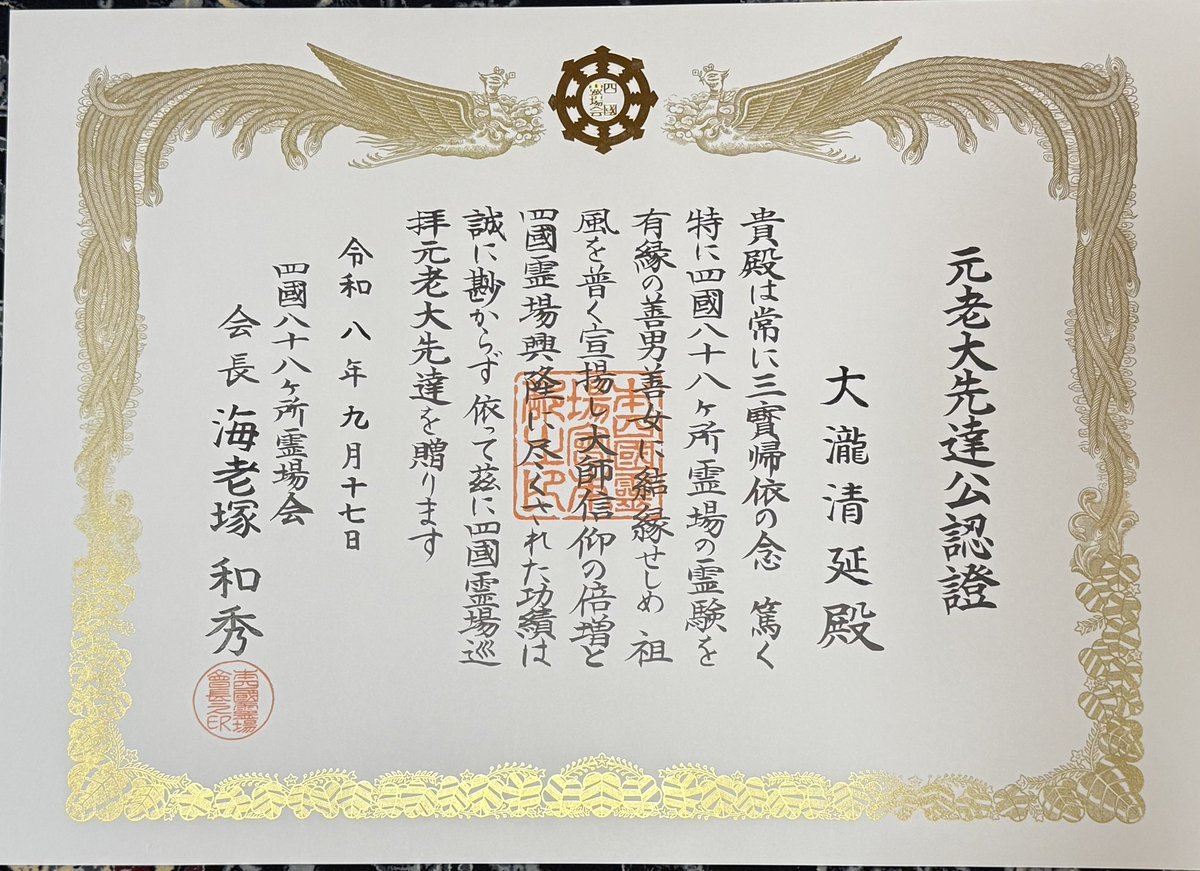 四國
霊場会
元老大先達公認證
大瀧清延殿
貴殿は常に三寳帰依の念 篤く
特に四國八十八ヶ所霊場の霊験を
有縁の善男善女に結縁せしめ 祖
風を普く宣揚し大師信仰の倍増と
四國霊場興隆に尽くされた功績は
誠に尠からず 依って茲に四國霊場巡
拝元老大先達を贈ります
令和八年九月十七日
四國八十八ヶ所霊場会
会長 海老塚 和秀